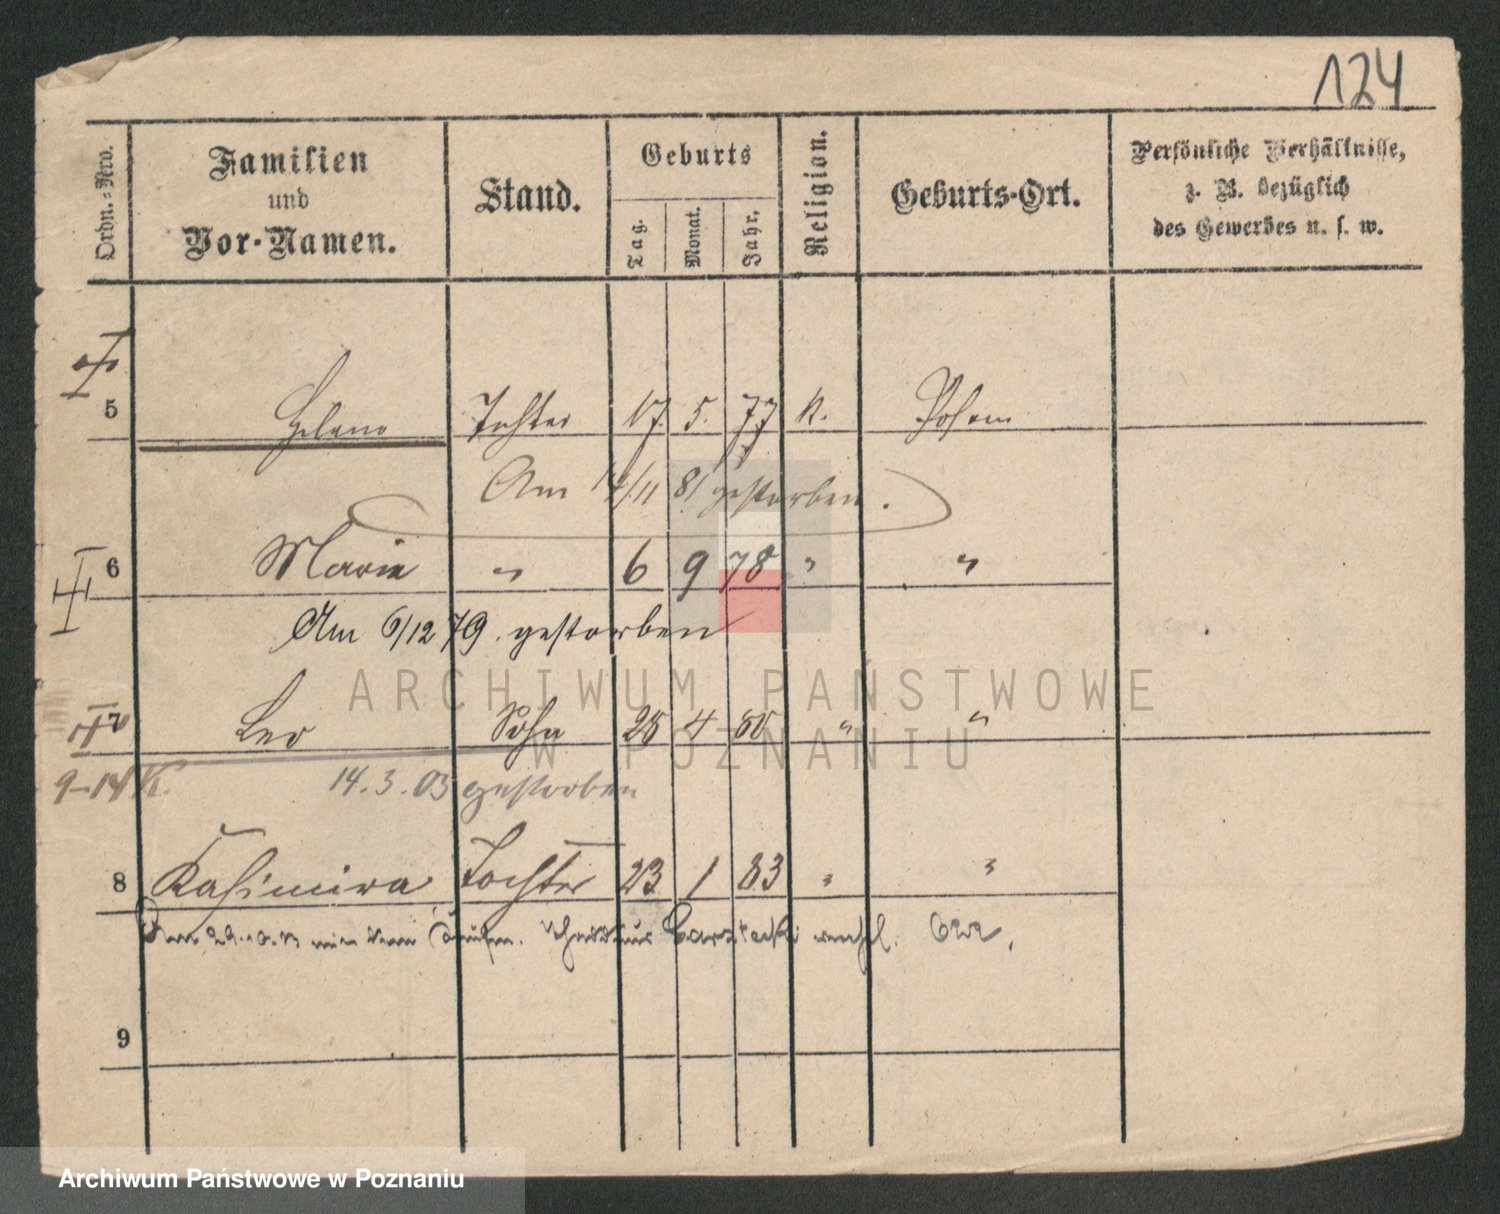 124
Ordn.-Nro.
Familien
und
Vor-Namen.
Stand.
Geburts
Tag.
Monat.
Jahr.
Religion.
Geburts-Ort.
Persönliche Verhältnisse,
z. B. bezüglich
des Gewerbes u. s. w.
5 Helene Tochter 17. 5. 77 k. Posen
Am 14/11 81 gestorben.
6 Marie " 6 9 78 " "
Am 6/12 79. gestorben
7 Leo Sohn 25 4 80 " "
9-14 K. 14.3.03 gestorben
8 Kasimira Tochter 23 1 83 " "
mit dem
9
ARCHIWUM PAŃSTWOWE
W POZNANIU
Archiwum Państwowe w Poznaniu